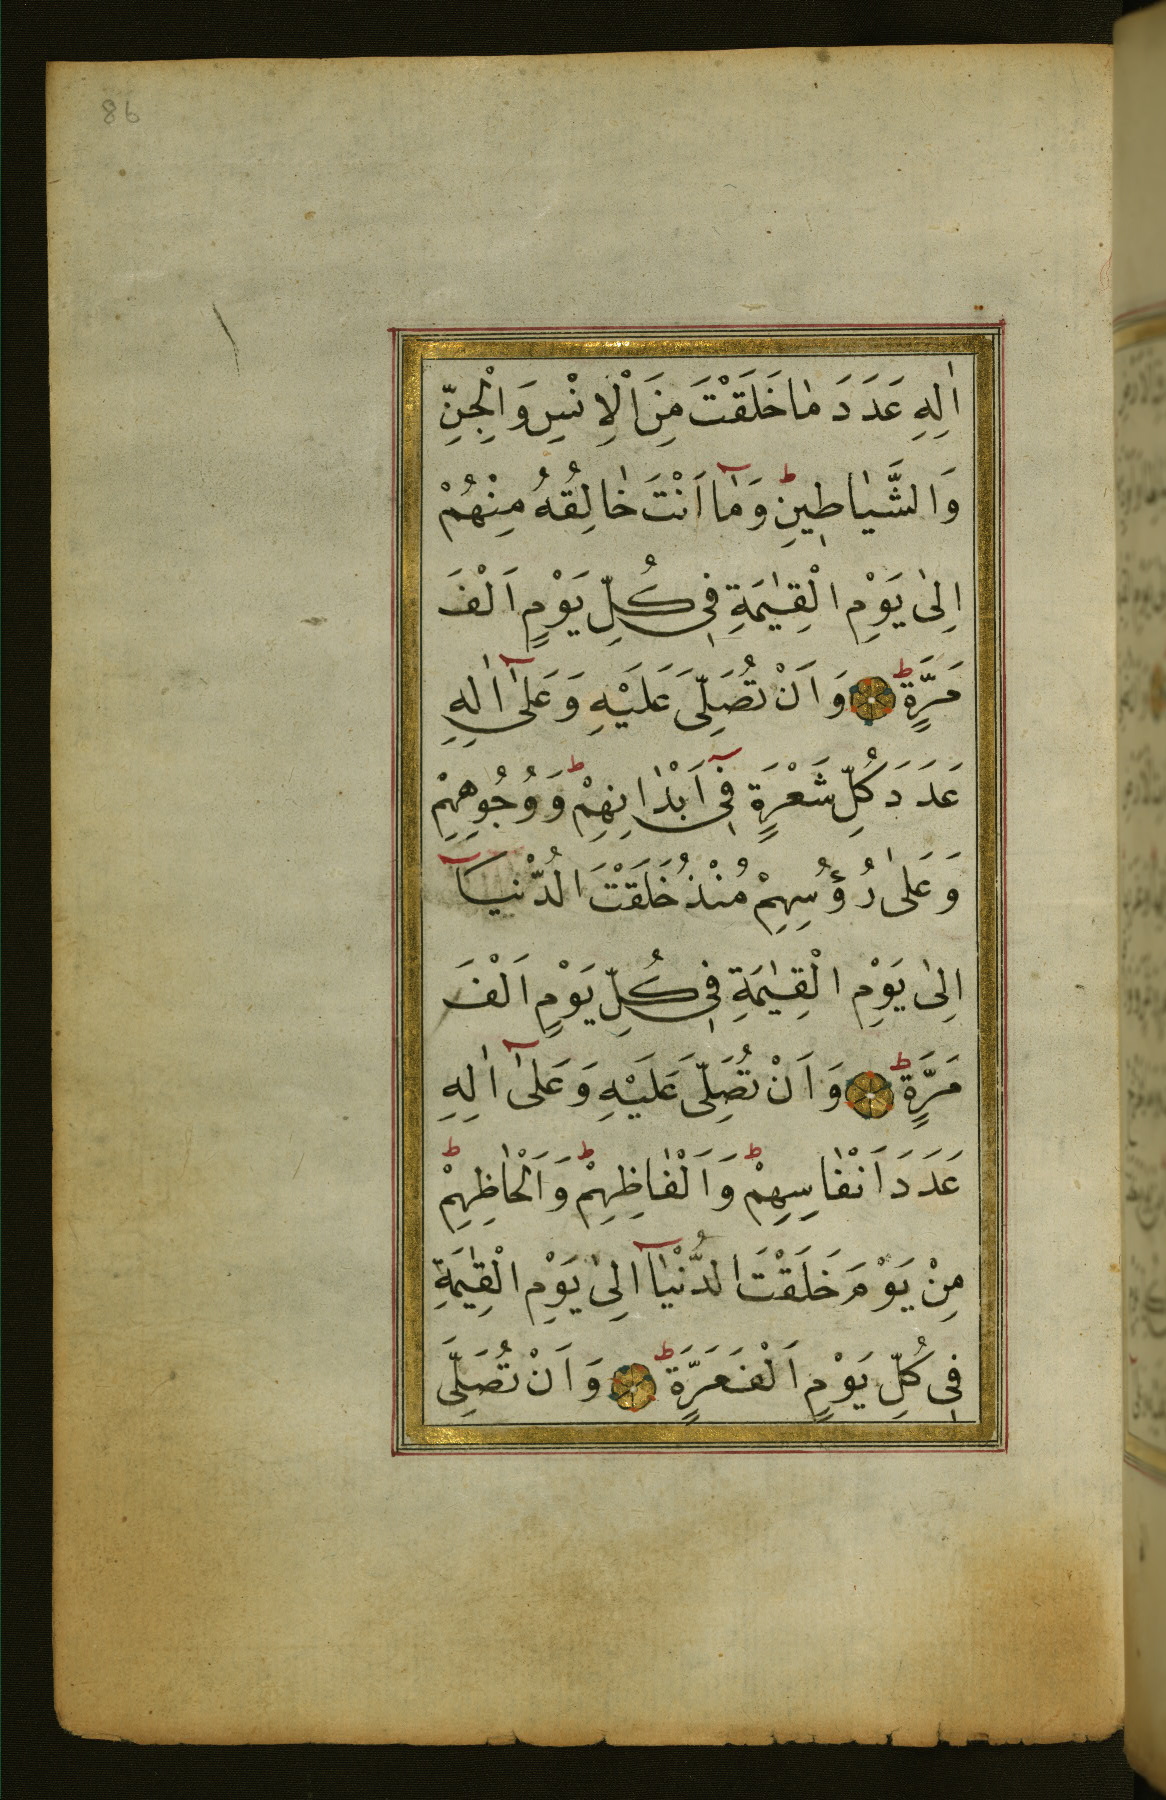 86
اٰلِهِ عَدَدَ مٰا خَلَقْتَ مِنَ اْلاِنْسِ وَالْجِنِّ
وَالشَّيٰاطِينِ ط وَمٰٓا اَنْتَ خٰالِقُهُ مِنْهُمْ
اِلىٰ يَوْمِ الْقِيٰمَةِ فِى كُلِّ يَوْمٍ اَلْفَ
مَرَّةٍ ط وَاَنْ تُصَلِّىَ عَلَيْهِ وَعَلىٰٓ اٰلِهِ
عَدَدَ كُلِّ شَعْرَةٍ فِىٓ اَبْدٰانِهِمْ ط وَوُجُوهِهِمْ
وَعَلىٰ رُؤُسِهِمْ مُنْذُ خَلَقْتَ الدُّنْيَآ
اِلىٰ يَوْمِ الْقِيٰمَةِ فِى كُلِّ يَوْمٍ اَلْفَ
مَرَّةٍ ط وَاَنْ تُصَلِّىَ عَلَيْهِ وَعَلىٰٓ اٰلِهِ
عَدَدَ اَنْفٰاسِهِمْ ط وَاَلْفٰاظِهِمْ ط وَاَلْحٰاظِهِمْ ط
مِنْ يَوْمَ خَلَقْتَ الدُّنْيٰآ اِلىٰ يَوْمِ الْقِيٰمَةِ
فِى كُلِّ يَوْمٍ اَلْفَ مَرَّةٍ ط وَاَنْ تُصَلِّىَ